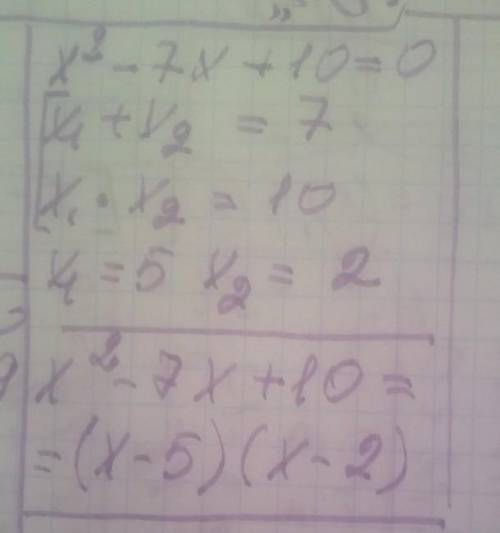 x² - 7x + 10 = 0
x₁ + x₂ = 7
x₁ · x₂ = 10
x₁ = 5 x₂ = 2
x² - 7x + 10 =
= (x - 5) (x - 2)